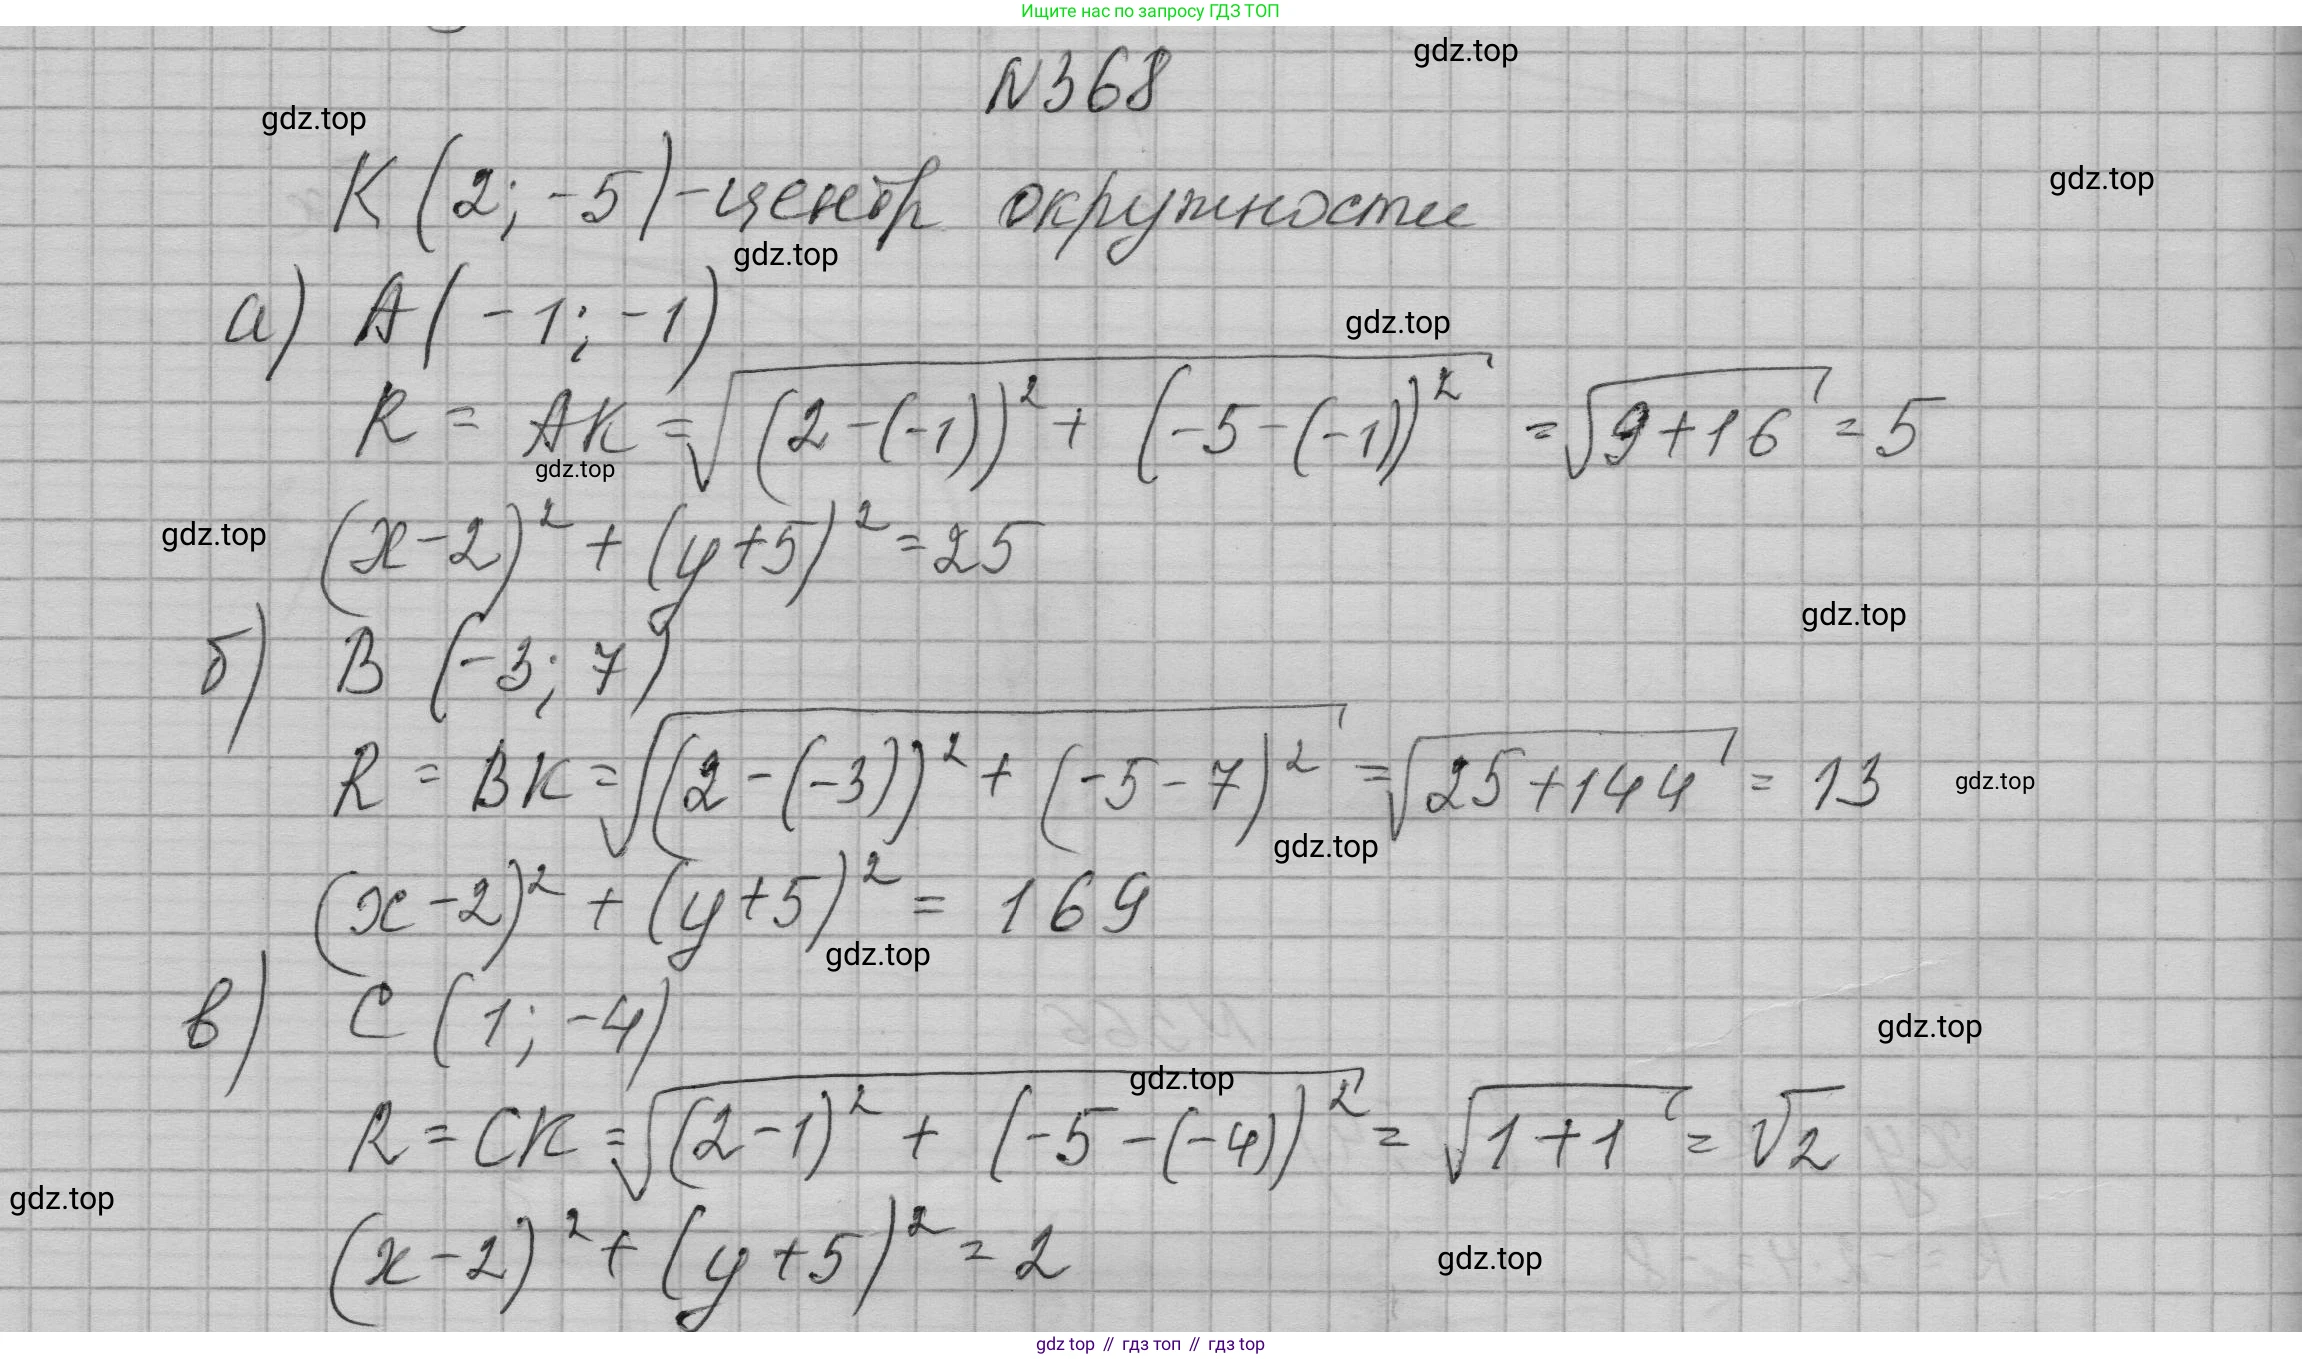 Ищите нас по запросу ГДЗ ТОП
gdz.top
N368
gdz.top
K(2; -5) - центр окружности
gdz.top
gdz.top
а) A(-1; -1)
gdz.top
R = AK = √((2-(-1))² + (-5-(-1))²) = √(9+16) = 5
gdz.top
gdz.top
(x-2)² + (y+5)² = 25
gdz.top
б) B(-3; 7)
R = BK = √((2-(-3))² + (-5-7)²) = √(25+144) = 13
gdz.top
gdz.top
(x-2)² + (y+5)² = 169
gdz.top
в) C(1; -4)
gdz.top
gdz.top
R = CK = √((2-1)² + (-5-(-4))²) = √(1+1) = √2
gdz.top
(x-2)² + (y+5)² = 2
gdz.top
gdz.top // гдз топ // гдз top